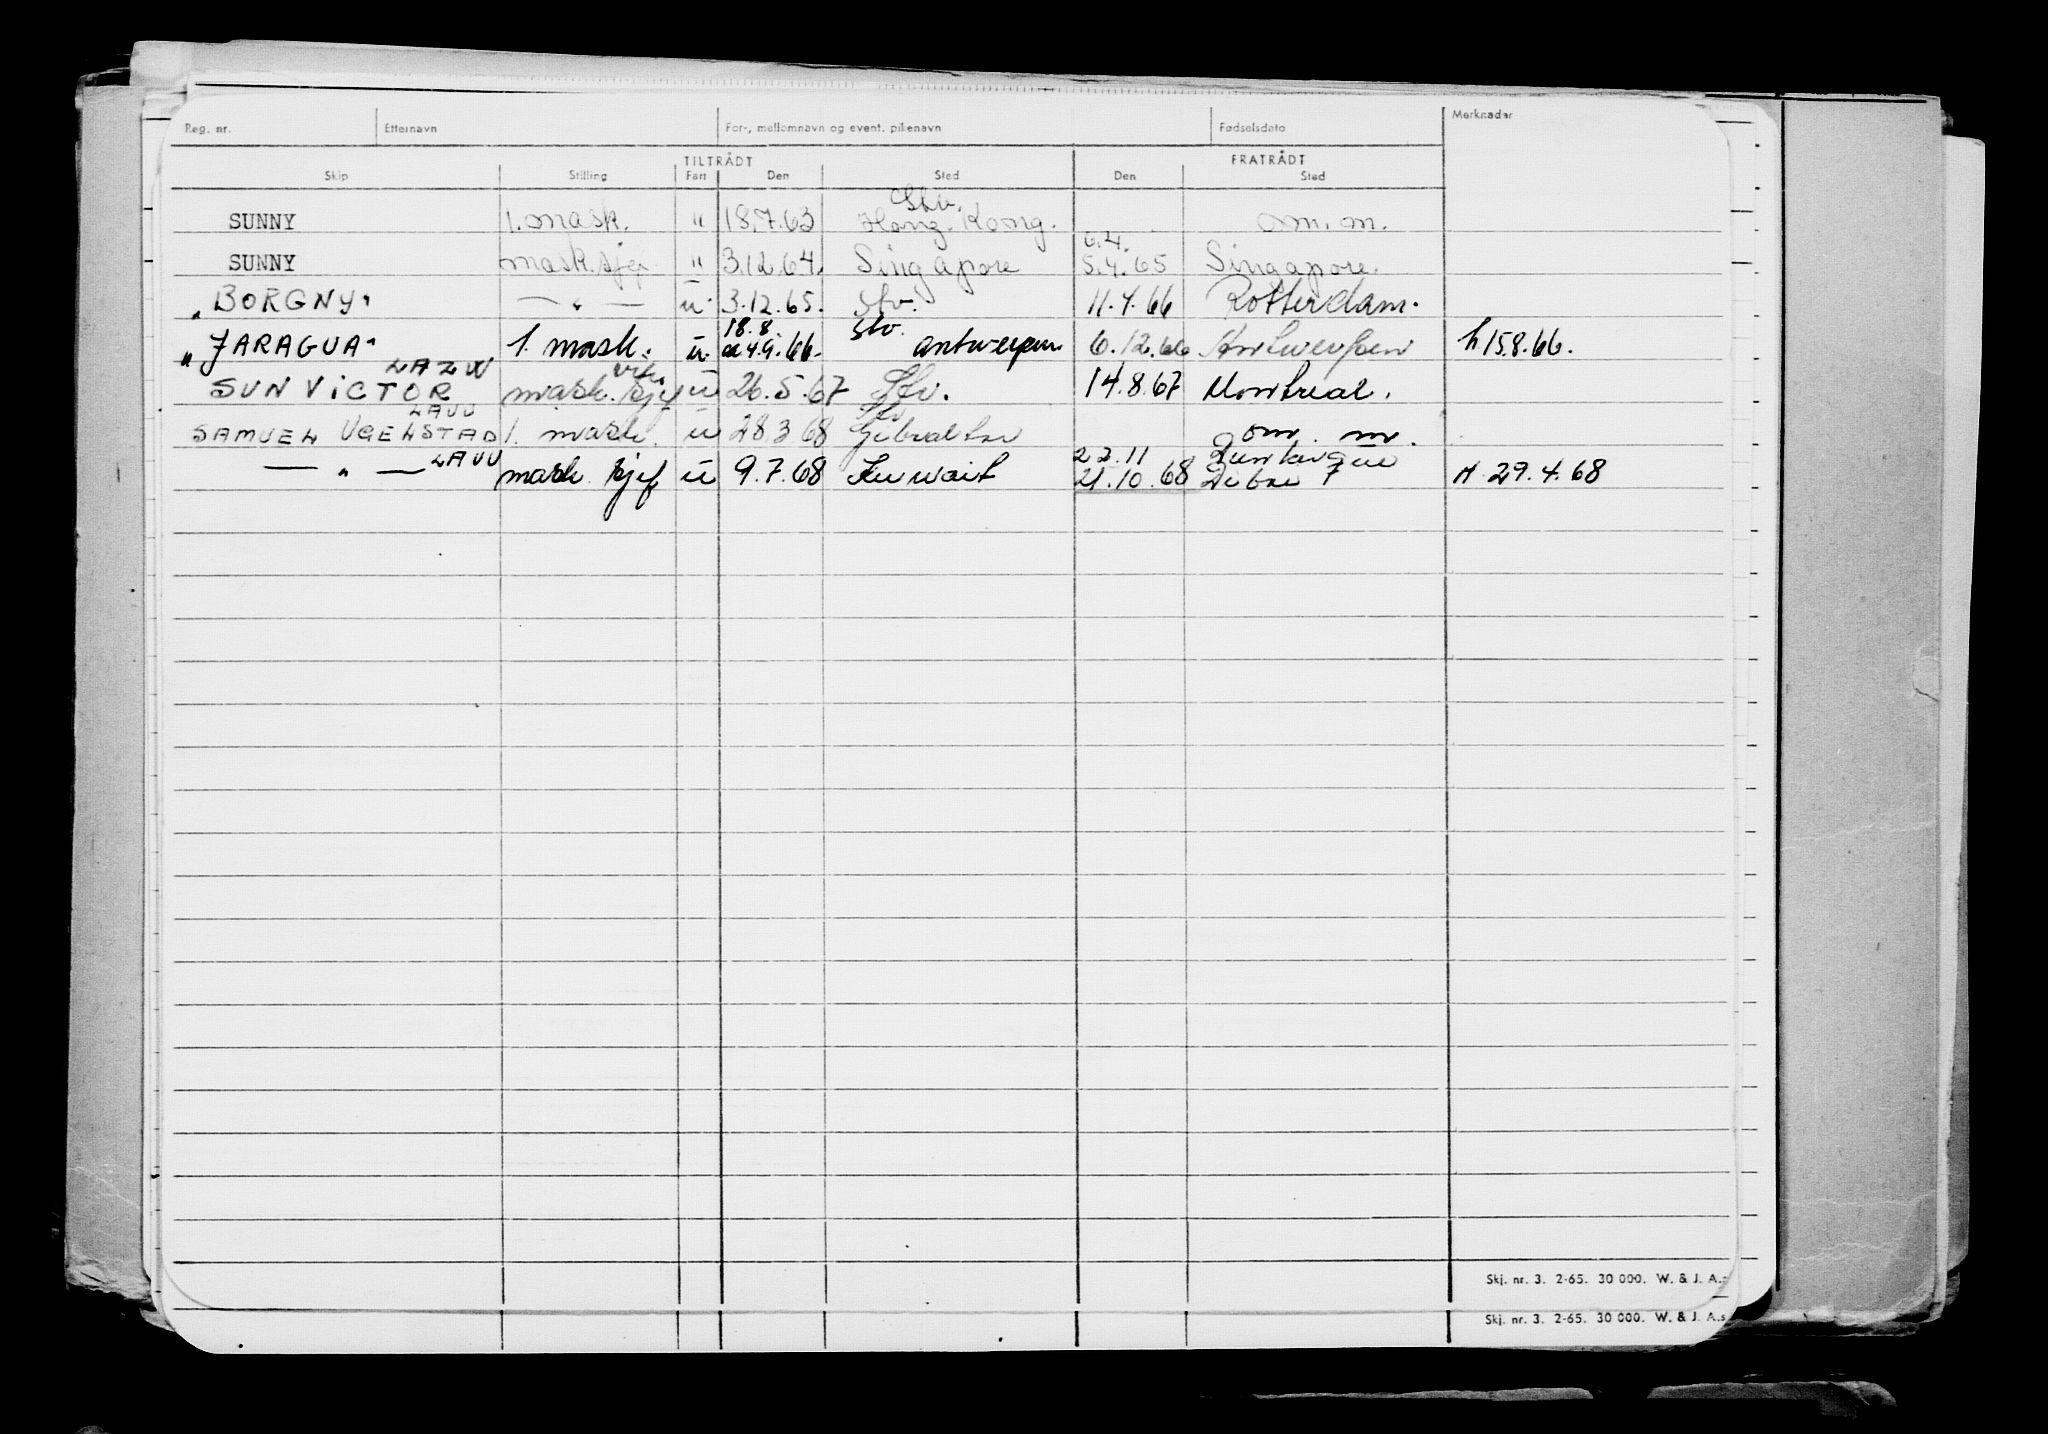 Reg. nr. Etternavn For-, mellomnavn og event. pikenavn Fødselsdato Merknader
TILTRÅDT FRATRÅDT
Skip Stilling Fart Den Sted Den Sted
Stv.
SUNNY 1. mask. " 18.7.63 Hong. Kong. om. m.
6.4.
SUNNY mask.sjef " 3.12.64. Singapore 5.4.65 Singapore.
"BORGNY" — " — u. 3.12.65. Stv. 11.4.66 Rotterdam.
18.8. Stv.
"JARAGUA" 1. mask. u. 4.9.66. antwerpen 6.12.66 Antwerpen h 15.8.66.
LAZW vik.
SUN VICTOR mask. sjef u 26.5.67 Stv. 14.8.67 Montreal.
LAUU Stv
SAMUEL UGELSTAD 1. mask. u 28.3 68 Gibraltar om. m.
LAUU 22.11 Dunkirque
— " — mask sjef u 9.7.68 Kuwait 21.10.68 Dubai ? H 29.4.68
Skj. nr. 3. 2-65. 30 000. W. & J. A.s
Skj. nr. 3. 2-65. 30 000. W. & J. A.s